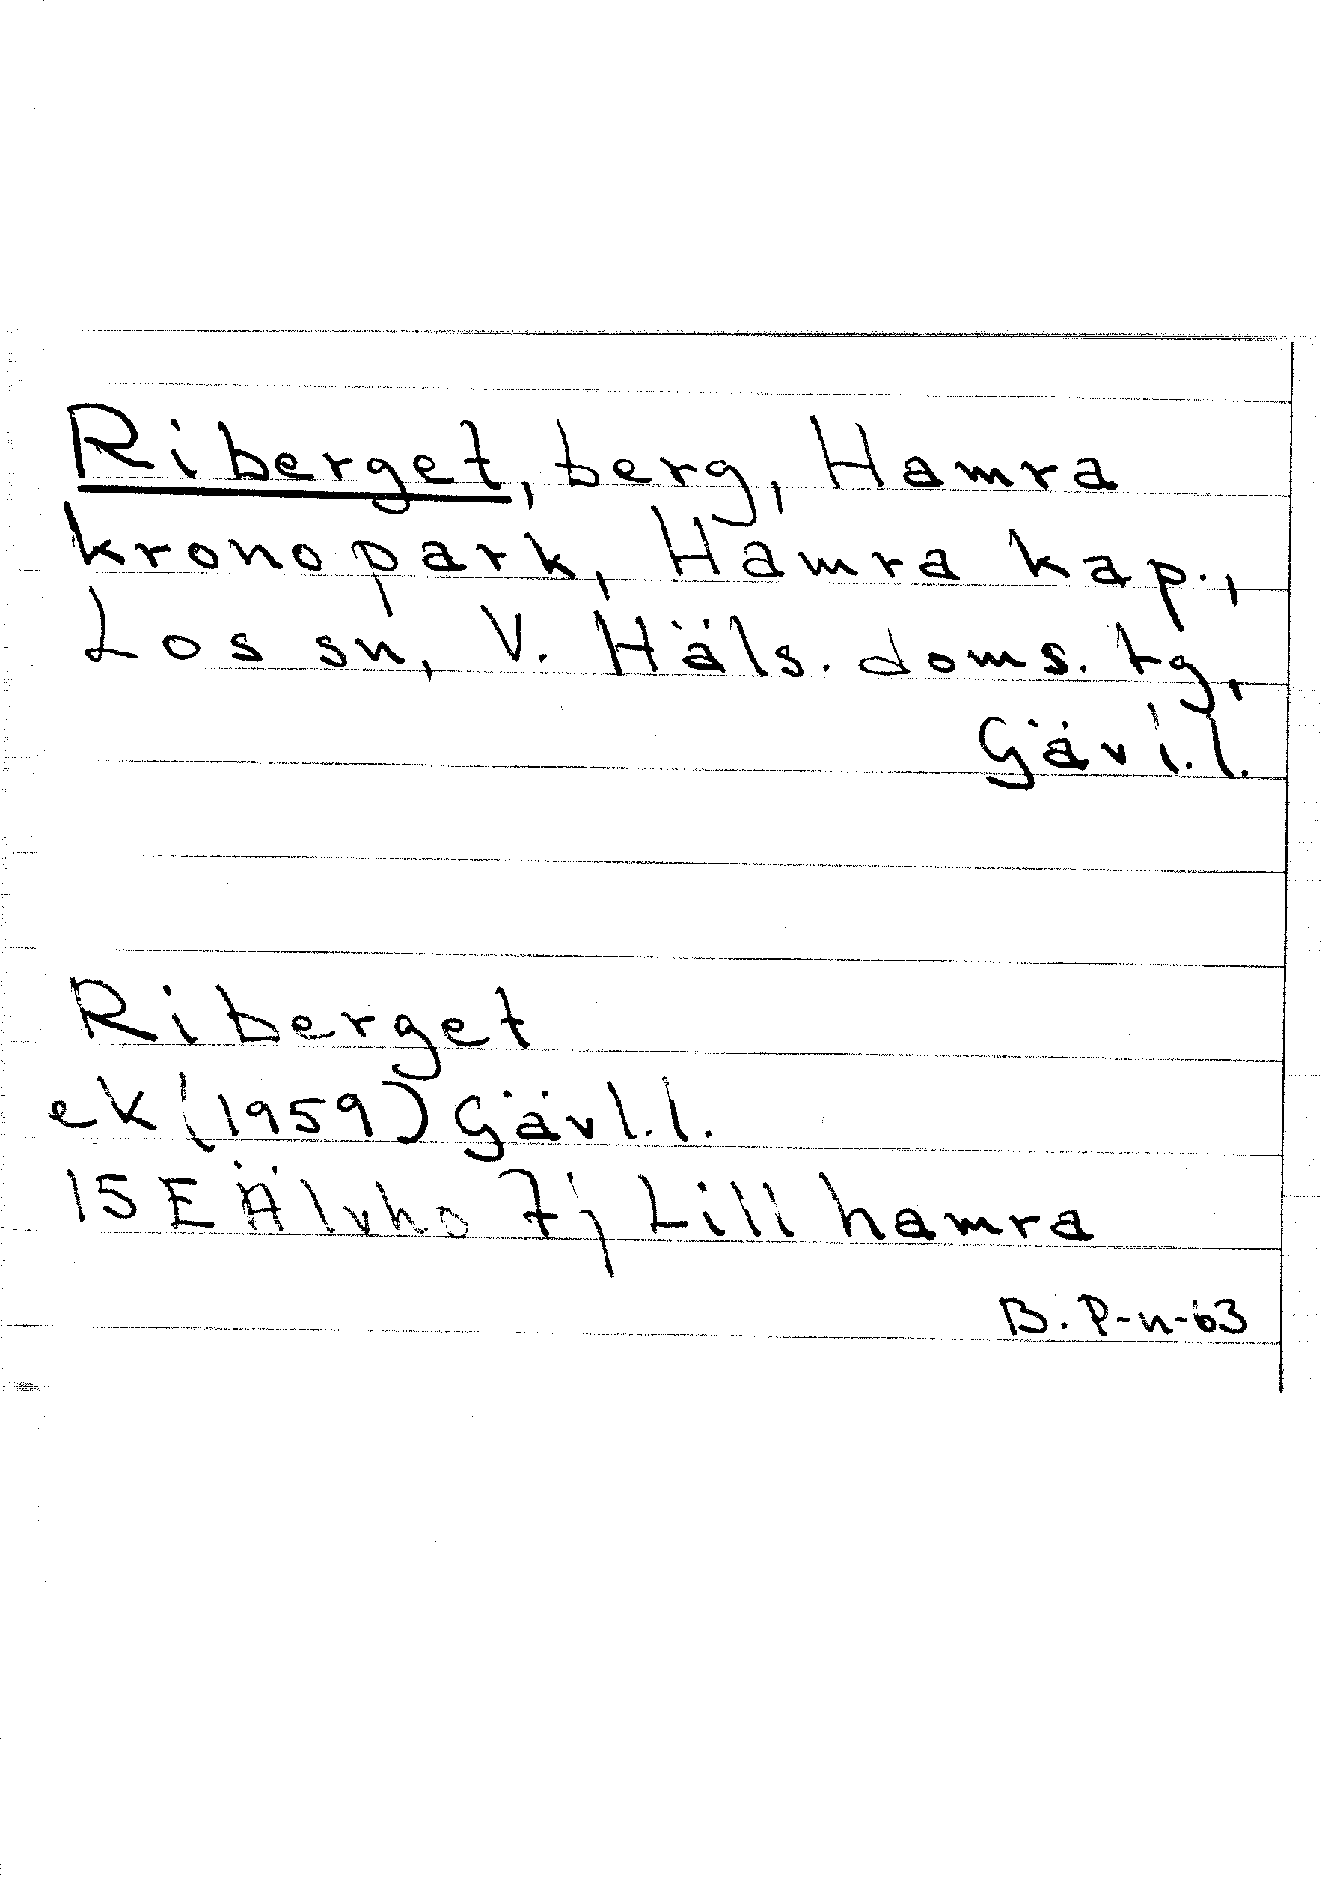 Riberget, berg, Hamra
kronopark, Hamra kap.,
Los sn, V. Häls. doms. tg,
Gävl.l.
Riberget
ek (1959) Gävl.l.
15E Älvho 7j Lillhamra
B. P-n-63